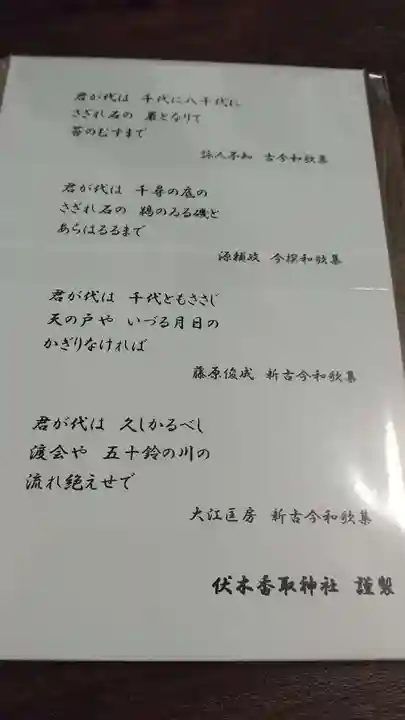 君が代は 千代に八千代に
さざれ石の 巌となりて
苔のむすまで
詠人不知 古今和歌集
君が代は 千尋の底の
さざれ石の 鵜のゐる磯と
あらはるるまで
源頼政 今撰和歌集
君が代は 千代ともささじ
天の戸や いづる月日の
かぎりなければ
藤原俊成 新古今和歌集
君が代は 久しかるべし
渡会や 五十鈴の川の
流れ絶えせで
大江匡房 新古今和歌集
伏木香取神社 謹製